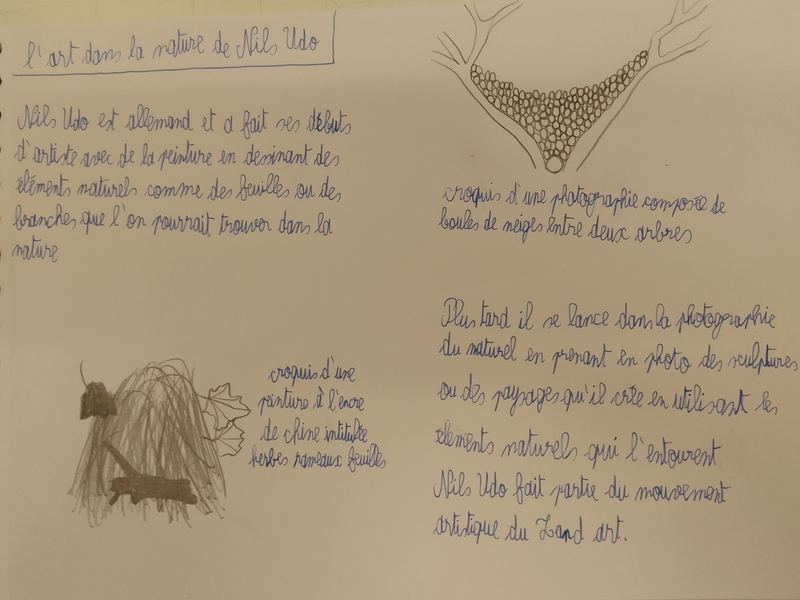 l'art dans la nature de Nils Udo
Nils Udo est allemand et a fait ses débuts
d'artiste avec de la peinture en dessinant des
éléments naturels comme des feuilles ou des
branches que l'on pourrait trouver dans la
nature
croquis d'une
peinture à l'encre
de chine intitulée
herbes rameaux feuilles
croquis d'une photographie composée de
boules de neiges entre deux arbres
Plus tard il se lance dans la photographie
du naturel en prenant en photo des sculptures
ou des paysages qu'il crée en utilisant les
éléments naturels qui l'entourent
Nils Udo fait partie du mouvement
artistique du Land art.